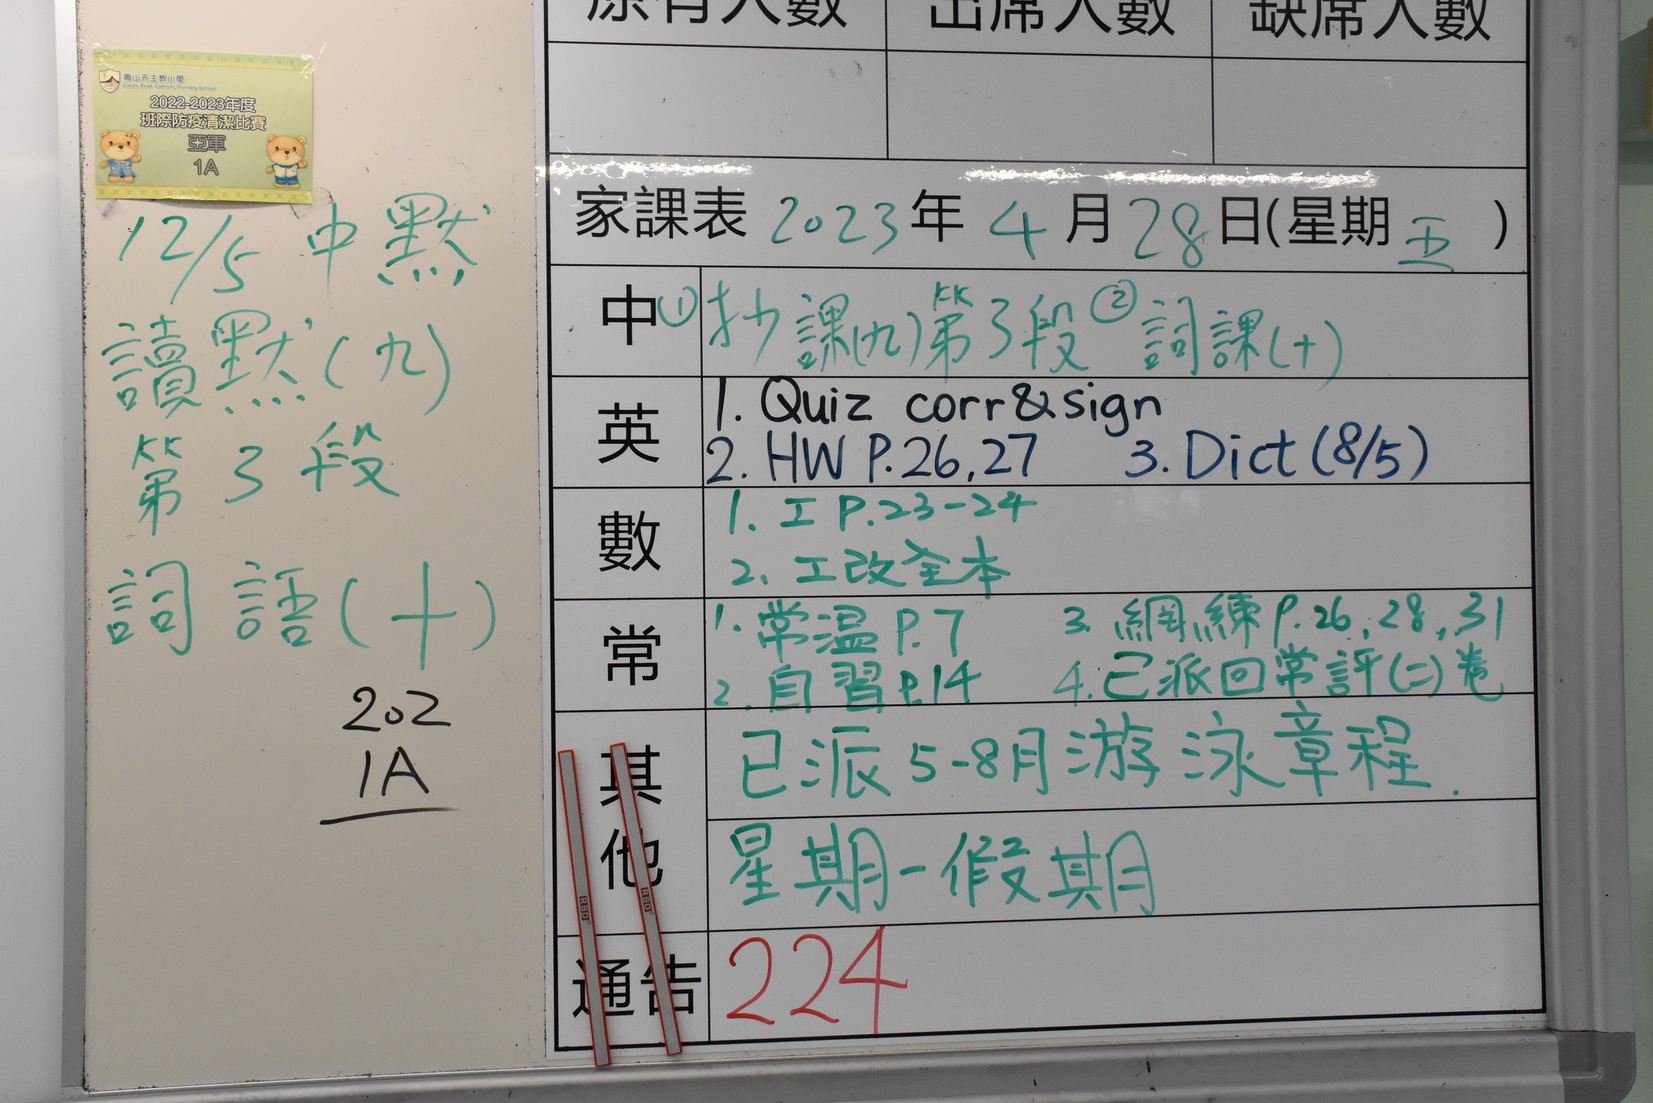 青山天主教小學
Castle Peak Catholic Primary School
2022-2023年度
班際防疫清潔比賽
亞軍
1A
12/5 中默
讀默(九)
第3段
詞語(十)
202
1A
原有人數 出席人數 缺席人數
家課表 2023年4月28日(星期五)
中 ①抄課(九)第3段 ②詞課(十)
英 1. Quiz corr&sign
2. HW P.26,27 3. Dict (8/5)
數 1. 工 P.23-24
2. 工改全本
常 1. 常溫 P.7 3. 網練 P.26,28,31
2. 自習 P.14 4. 已派回常評(二)卷
其他 已派5-8月游泳章程.
星期一假期
通告 224
RBD
RBD